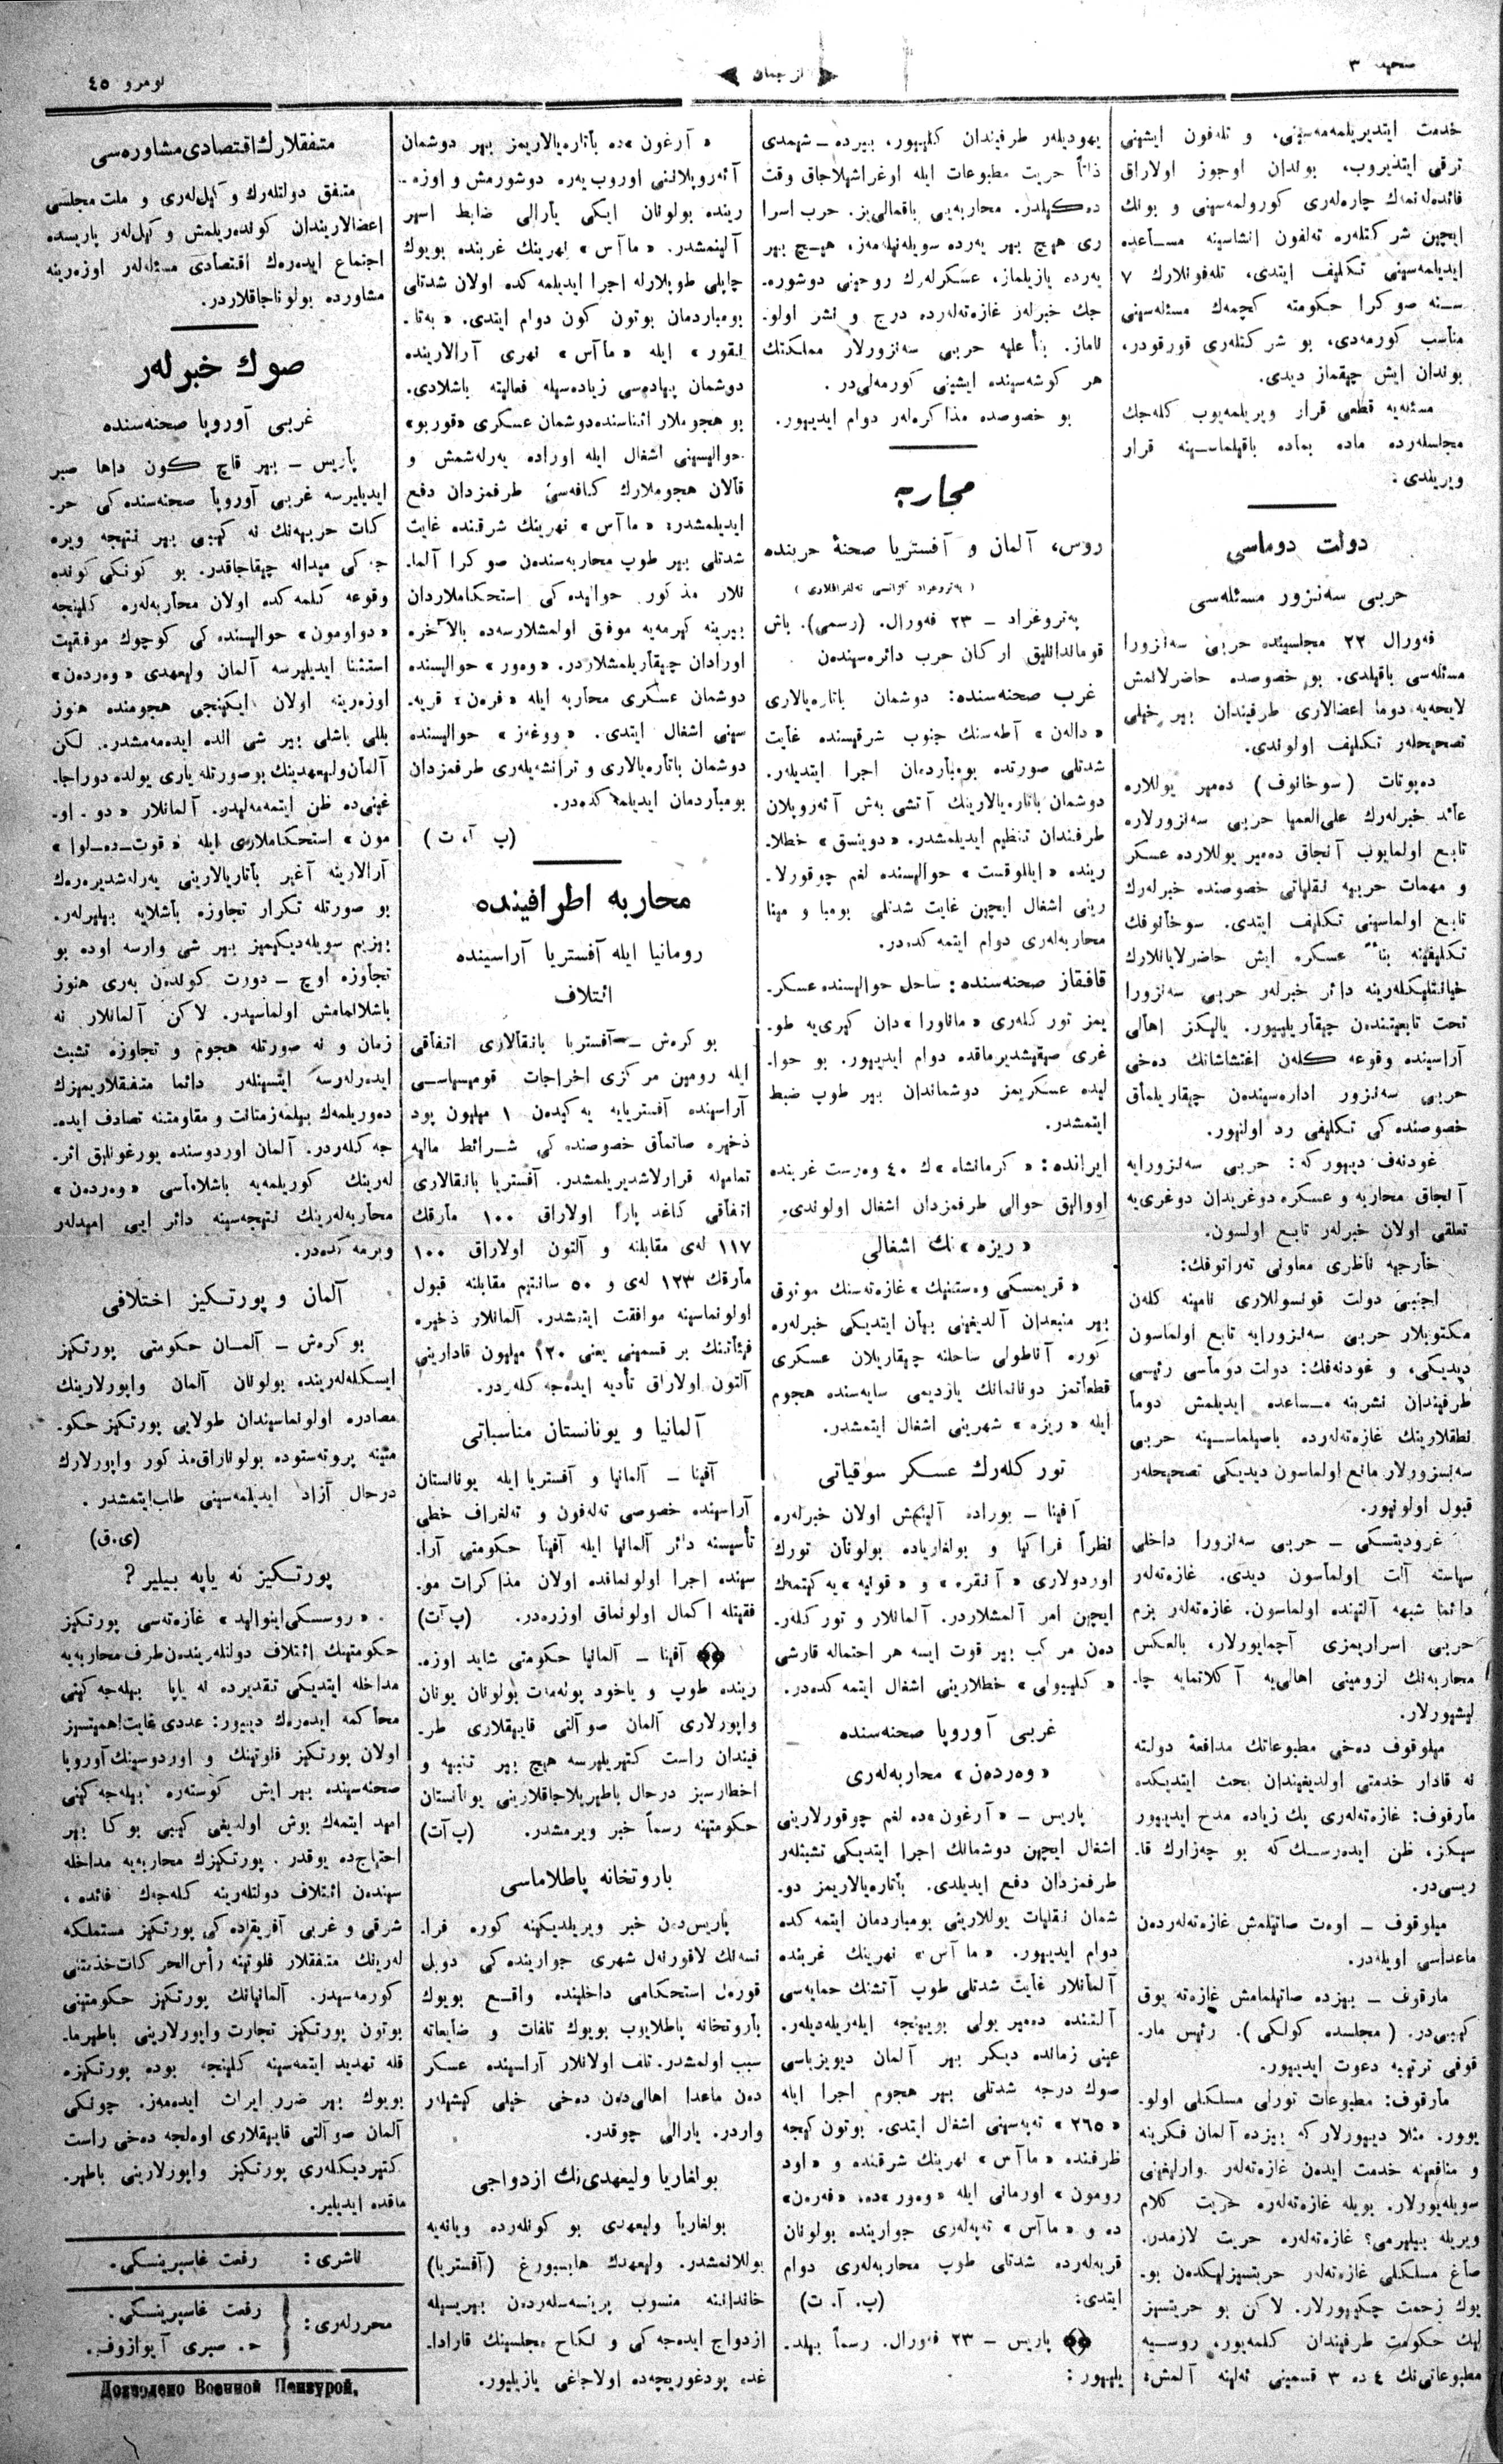 صحیفه ٣
ترجمان
نومرو ٤٥
خدمت ایتدیریلمه‌مه‌سینی، و تله‌فون ایشینی
ترقی ایتدیروب، بوندان اوجوز اولاراق
فائده‌له‌نمه‌ك چاره‌له‌ری كورولمه‌سینی و بونك
ایچین شركتله‌ره ته‌لفون انشاسینه مساعده
ایدیلمه‌سینی تكلیف ایتدی، تله‌فونلارك ٧
سنه صوكرا حكومته كچمه‌ك مسئله‌سینی
مناسب كورمه‌دی، بو شركتله‌ری قورقودر،
بوندان ایش چیقماز دیدی.
مسئله‌یه قطعی قرار ویریلمه‌یوب كله‌جك
مجلسله‌رده ماده بماده باقیلماسینه قرار
ویریلدی:
دولت دوماسی
حربی سه‌نزور مسئله‌سی
فه‌ورال ٢٢ مجلسینده حربی سه‌نزورا
مسئله‌سی باقیلدی. بو خصوصده حاضرلانمش
لایحه‌یه دوما اعضالاری طرفیندان بیر خیلی
تصحیحله‌ر تكلیف اولوندی.
ده‌پوتات (سوخانوف) ده‌میر یوللاره
عائد خبرله‌رك علی‌العمیا حربی سه‌نزورلاره
تابع اولمایوب آنجاق ده‌میر یوللارده عسكر
و مهمات حربیه نقلیاتی خصوصنده خبرله‌رك
تابع اولماسینی تكلیف ایتدی. سوخانوفك
تكلیفینه بناً عسكره ایش حاضرلایانلارك
خیانتلیكله‌رینه دائر خبرله‌ر حربی سه‌نزورا
تحت تابعیتیندن چیقاریلیور. یالیكز اهالی
آراسینده وقوعه كله‌ن اغتشاشاتك ده‌خی
حربی سه‌نزور اداره‌سیندن چیقاریلماق
خصوصنده‌كی تكلیفی رد اولنیور.
غودنه‌ف دییوركه: حربی سه‌نزورایه
آنجاق محاربه و عسكره دوغریدان دوغری‌یه
تعلقی اولان خبرله‌ر تابع اولسون.
خارجیه ناظری معاونی نه‌راتوفك:
اجنبی دولت قونسوللاری نامینه كله‌ن
مكتوبلار حربی سه‌نزورایه تابع اولماسون
دیدیكی، و غودنه‌فك: دولت دوماسی رئیسی
طرفیندان نشرینه مساعده ایدیلمش دوما
نطقلارینك غازه‌ته‌له‌رده باصیلماسینه حربی
سه‌نسزورلار مانع اولماسون دیدیكی تصحیحله‌ر
قبول اولونیور.
غرودیتسكی – حربی سه‌نزورا داخلی
سیاسته آلت اولماسون دیدی. غازه‌ته‌له‌ر
دائما شبهه آلتینده اولماسون. غازه‌ته‌له‌ر بزم
حربی اسراریمزی آچمایورلار، بالعكس
محاربه‌نك لزومینی اهالی‌یه آكلاتمایه چا-
لیشیورلار.
میلوقوف ده‌خی مطبوعاتك مدافعهٔ دولته
نه قادار خدمتی اولدیغیندان بحث ایتدیكده
مارقوف: غازه‌ته‌له‌ری پك زیاده مدح ایدییور
سیكز، ظن ایده‌رسك كه بو چه‌زارك قا-
ریسی‌در.
میلوقوف – اوه‌ت صاتیلمش غازه‌ته‌له‌ردن
ماعداسی اویله‌در.
مارقوف – بیزده صاتیلمامش غازه‌ته یوق
كیبی‌در. (مجلسده كولكی). رئیس مار-
قوفی ترتیبه دعوت ایدییور.
مارقوف: مطبوعات تورلی مسلكلی اولو-
یوور. مثلا دییورلاركه بیزده آلمان فكرینه
و منافعینه خدمت ایده‌ن غازه‌ته‌له‌ر وارلیغینی
سویله‌یورلار. بویله غازه‌ته‌له‌ره حریت كلام
ویریله بیلیرمی؟ غازه‌ته‌له‌ره حریت لازمدر.
صاغ مسلكلی غازه‌ته‌له‌ر حریتسیزلیكدن بو-
یوك زحمت چكییورلار. لاكن بو حریتسیز
لیك حكومت طرفیندان كلمه‌یور، روسیه
مطبوعاتی‌نك ٤ ده ٣ قسمینی ئه‌لینه آلمش؛
یهودیله‌ر طرفیندان كلییور، بیرده – شیمدی
ذاتاً حریت مطبوعات ایله اوغراشیلاجاق وقت
ده‌كیلدر. محاربه‌یی باقمالی‌یز. حرب اسرا
ری هیچ بیر یه‌رده سویله‌نیله‌مه‌ز، هیچ بیر
یه‌رده یازیلماز، عسكرله‌رك روحینی دوشوره-
جك خبرله‌ر غازه‌ته‌له‌رده درج و نشر اولو-
ناماز. بناً علیه حربی سه‌نزورلار مملكتك
هر كوشه‌سینده ایشینی كورمه‌لی‌در.
بو خصوصده مذاكره‌له‌ر دوام ایدییور.
محاربه
روس، آلمان و آفستریا صحنهٔ حربنده
(په‌تروغراد آژانسی ته‌لغرافلاری)
په‌تروغراد – ٢٣ فه‌ورال. (رسمی). باش
قومانداانلیق اركان حرب دائره‌سیندن
غرب صحنه‌سنده: دوشمان باتاره‌یالاری
«داله‌ن» آطه‌سنك جنوب شرقیسنده غایت
شدتلی صورتده بومباردمان اجرا ایتدیله‌ر.
دوشمان باتاره‌یالارینك آتشی بش آئه‌روپلان
طرفندان تنظیم ایدیلمشدر. «دوینسق» خطلا-
رینده «ایللوقست» حوالیسنده لغم چوقورلا-
رینی اشغال ایچین غایت شدتلی بومبا و مینا
محاربه‌له‌ری دوام ایتمه‌كده‌در.
قافقاز صحنه‌سنده: ساحل حوالیسنده عسكر-
یمز توركله‌ری «ماناورا»دان كیری‌یه طو-
غری صیقیشدیرماقده دوام ایدییور. بو حوا-
لیده عسكریمز دوشماندان بیر طوپ ضبط
ایتمشدر.
ایرانده: «كرمانشاه»ك ٤٠ وه‌رست غربنده
اووالیق حوالی طرفمزدان اشغال اولوندی.
«ریزه»نك اشغالی
«قریمسكی وه‌ستنیك» غازه‌ته‌سنك موثوق
بیر منبعدان آلدیغینی بیان ایتدیكی خبرله‌ره
كوره آناطولی ساحلنه چیقاریلان عسكری
قطعاتمز دونانمانك یاردیمی سایه‌سنده هجوم
ایله «ریزه» شهرینی اشغال ایتمشدر.
توركله‌رك عسكر سوقیاتی
آفینا – بوراده آلینمش اولان خبرله‌ره
نظراً فراكیا و بولغاریاده بولونان تورك
اوردولاری «آنقره» و «قونیه»یه كیتمه‌ك
ایچین امر آلمشلاردر. آلمانلار و توركله‌ر-
دن مركب بیر قوت ایسه هر احتماله قارشی
«كلیبولی» خطلارینی اشغال ایتمه‌كده‌در.
غربی آوروپا صحنه‌سنده
«وه‌رده‌ن» محاربه‌له‌ری
پاریس – «آرغون»ده لغم چوقورلارینی
اشغال ایچین دوشمانك اجرا ایتدیكی تشبثله‌ر
طرفمزدان دفع ایدیلدی. باتاره‌یالاریمز دو-
شمان نقلیات یوللارینی بومباردمان ایتمه‌كده
دوام ایدییور. «ماآس» نهرینك غربنده
آلمانلار غایت شدتلی طوپ آتشنك حمایه‌سی
آلتنده ده‌میر یولی بویینجه ایله‌ریله‌دیله‌ر.
عینی زمانده دیكر بیر آلمان دیویزیاسی
صوك درجه شدتلی بیر هجوم اجرا ایله
«٢٦٥» تپه‌سینی اشغال ایتدی. بوتون كیجه
ظرفنده «ماآس» نهرینك شرقنده و «اود
رومون» اورمانی ایله «وه‌ور»ده، «فه‌ره‌ن»
ده و «ماآس» تپه‌له‌ری جوارینده بولونان
قریه‌له‌رده شدتلی طوپ محاربه‌له‌ری دوام
ایتدی: (پ. آ. ت)
پاریس – ٢٣ فه‌ورال. رسماً بیلد-
یلییور:
«آرغون»ده باتاره‌یالاریمز بیر دوشمان
آئه‌روپلاننی اوروب یه‌ره دوشورمش و اوزه-
رینده بولونان ایكی یارالی ضابط اسیر
آلینمشدر. «ماآس» نهرینك غربنده بویوك
چاپلی طوپلارله اجرا ایدیلمه‌كده اولان شدتلی
بومباردمان بوتون كون دوام ایتدی. «به‌تا-
نقور» ایله «ماآس» نهری آرالارینده
دوشمان پیاده‌سی زیاده‌سیله فعالیته باشلادی.
بو هجوملار اثناسنده دوشمان عسكری «قوربو»
حوالیسینی اشغال ایله اوراده یه‌رله‌شمش و
قالان هجوملارك كافه‌سی طرفمزدان دفع
ایدیلمشدر: «ماآس» نهرینك شرقنده غایت
شدتلی بیر طوپ محاربه‌سنده‌ن صوكرا آلما-
نلار مذكور حوالیده‌كی استحكاملاردان
بیرینه كیرمه‌یه موفق اولمشلارسه‌ده بالآخره
اورادان چیقاریلمشلاردر. «وه‌ور» حوالیسنده
دوشمان عسكری محاربه ایله «فره‌ن» قریه-
سینی اشغال ایتدی. «ووغه‌ز» حوالیسنده
دوشمان باتاره‌یالاری و ترانشه‌یله‌ری طرفمزدان
بومباردمان ایدیلمه‌كده‌در.
(پ آ. ت)
محاربه اطرافینده
رومانیا ایله آفستریا آراسینده
ائتلاف
بوكره‌ش – آفستریا بانقالاری اتفاقی
ایله رومین مركزی اخراجات قومیسیاسی
آراسینده آفستریایه یه‌كیده‌ن ١ میلیون پود
ذخیره صاتماق خصوصنده‌كی شرائط مالیه
تمامیله قرارلاشدیریلمشدر. آفستریا بانقالاری
اتفاقی كاغد پارا اولاراق ١٠٠ مارقك
١١٧ له‌ی مقابلنه و آلتون اولاراق ١٠٠
مارقك ١٢٣ له‌ی و ٥٠ سانتیم مقابلنه قبول
اولونماسینه موافقت ایتمشدر. آلمانلار ذخیره
فیئاتنك بر قسمینی یعنی ١٢٠ میلیون قادارینی
آلتون اولاراق تأدیه ایده‌جه‌كله‌ردر.
آلمانیا و یونانستان مناسباتی
آفینا – آلمانیا و آفستریا ایله یونانستان
آراسینده خصوصی ته‌له‌فون و ته‌لغراف خطی
تأسیسنه دائر آلمانیا ایله آفینا حكومتی آرا-
سینده اجرا اولونماقده اولان مذاكرات مو-
فقیتله اكمال اولونماق اوزره‌در. (پ آت)
آفینا – آلمانیا حكومتی شاید اوزه-
رینده طوپ و یاخود بولونان یونان
واپورلاری آلمان صو آلتی قاییقلاری طر-
فیندان راست كتیریلیرسه هیچ بیر تنبیه و
اخطارسیز درحال باطیریلاجاقلارینی یونانستان
حكومتینه رسماً خبر ویرمشدر. (پ آت)
باروتخانه پاطلاماسی
پاریس‌ده‌ن خبر ویریلدیكینه كوره فرا-
نسه‌نك لاقورنه‌ل شهری جوارینده‌كی دوبل
قورول استحكامی داخلینده واقع بویوك
باروتخانه پاطلایوب بویوك تلفات و ضایعاته
سبب اولمشدر. تلف اولانلار آراسینده عسكر
ده‌ن ماعدا اهالی‌ده‌ن ده‌خی خیلی كیشیله‌ر
واردر. یارالی چوقدر.
بولغاریا ولیعهدی‌نك ازدواجی
بولغاریا ولیعهدی بو كونله‌رده ویانه‌یه
یوللانمشدر. ولیعهدك هابسبورغ (آفستریا)
خانداننه منسوب پرینسه‌سله‌رده‌ن بیریسیله
ازدواج ایده‌جه‌كی و نكاح مجلسینك قارادا-
غده پودغوریچه‌ده اولاجاغی یازیلییور.
متفقلارك اقتصادی مشاوره‌سی
متفق دولتله‌رك وكیل‌له‌ری و ملت مجلسی
اعضالاریندان كونده‌ریلمش وكیل‌له‌ر پاریسده
اجتماع ایده‌ره‌ك اقتصادی مسئله‌له‌ر اوزه‌رینه
مشاورده بولوناجاقلاردر.
صوك خبرله‌ر
غربی آوروپا صحنه‌سنده
پاریس – بیر قاچ كون داها صبر
ایدیلیرسه غربی آوروپا صحنه‌سنده‌كی حر-
كات حربیه‌نك نه كیبی بیر نتیجه ویره
جه‌كی میدانه چیقاجاقدر. بو كونكی كونده
وقوعه كلمه‌كده اولان محاربه‌له‌ره كلینجه
«دواومون» حوالیسنده‌كی كوچوك موفقیت
استثنا ایدیلیرسه آلمان ولیعهدی «وه‌رده‌ن»
اوزه‌رینه اولان ایكینجی هجومنده هنوز
بللی باشلی بیر شی الده ایده‌مه‌مشدر. لكن
آلمان ولیعهدینك بو صورتله یاری یولده دوراجا-
غینی‌ده ظن ایتمه‌مه‌لیدر. آلمانلار «دو-او-
مون» استحكاملاری ایله «قوت-ده-لوا»
آرالارینه آغیر باتاریالارینی یه‌رله‌شدیره‌ره‌ك
بو صورتله تكرار تجاوزه باشلایه بیلیرله‌ر.
بیزیم سویله‌دیكیمیز بیر شی وارسه اوده بو
تجاوزه اوچ – دورت كونده‌ن به‌ری هنوز
باشلانمامش اولماسیدر. لاكن آلمانلار نه
زمان و نه صورتله هجوم و تجاوزه تشبث
ایده‌رله‌رسه ایتسینله‌ر دائما متفقلاریمیزك
ده‌وریلمه‌ك بیلمه‌ز متانت و مقاومتنه تصادف ایده-
جه‌كله‌ردر. آلمان اوردوسنده یورغونلیق اثر-
له‌رینك كوریلمه‌یه باشلاماسی «وه‌رده‌ن»
محاربه‌له‌رینك نتیجه‌سینه دائر ایی امیدله‌ر
ویرمه‌كده‌در.
آلمان و پورتكیز اختلافی
بوكره‌ش – آلمان حكومتی پورتكیز
ایسكله‌له‌رینده بولونان آلمان واپورلارینك
مصادره اولونماسیندان طولایی پورتكیز حكو-
متینه پروته‌ستوده بولوناراق مذكور واپورلارك
درحال آزاد ایدیلمه‌سینی طلب ایتمشدر.
(ی.ق)
پورتكیز نه یاپه بیلیر؟
«روسسكی اینوالید» غازه‌ته‌سی پورتكیز
حكومتینك ائتلاف دولتله‌رینده‌ن طرف محاربه‌یه
مداخله ایتدیكی تقدیرده نه یاپا بیله‌جه‌كینی
محاكمه ایده‌ره‌ك دییور: عددی غایت اهمیتسیز
اولان پورتكیز فلوتینك و اوردوسینك آوروپا
صحنه‌سینده بیر ایش كوسته‌ره بیله‌جه‌كینی
امید ایتمه‌ك بوش اولدیغی كیبی بوكا بیر
احتیاج‌ده یوقدر. پورتكیزك محاربه‌یه مداخله
سیندن ائتلاف دولتله‌رینه كله‌جه‌ك فائده،
شرقی و غربی آفریقاده‌كی پورتكیز مستملكه
له‌رینك متفقلار فلوتینه رأس‌الحركات خدمتنی
كورمه‌سیدر. آلمانیانك پورتكیز حكومتینی
بوتون پورتكیز تجارت واپورلارینی باطیرما-
قله تهدید ایتمه‌سینه كلینجه بوده پورتكیزه
بویوك بیر ضرر ایراث ایده‌مه‌ز. چونكی
آلمان صو آلتی قاییقلاری اوه‌لجه ده‌خی راست
كتیردیكله‌ری پورتكیز واپورلارینی باطیر-
ماقده ایدیلیر.
ناشری: رفعت غاسپرینسكی.
محررله‌ری: رفعت غاسپرینسكی.
ح. صبری آیوازوف.
Дозволено Военной Цензурой.